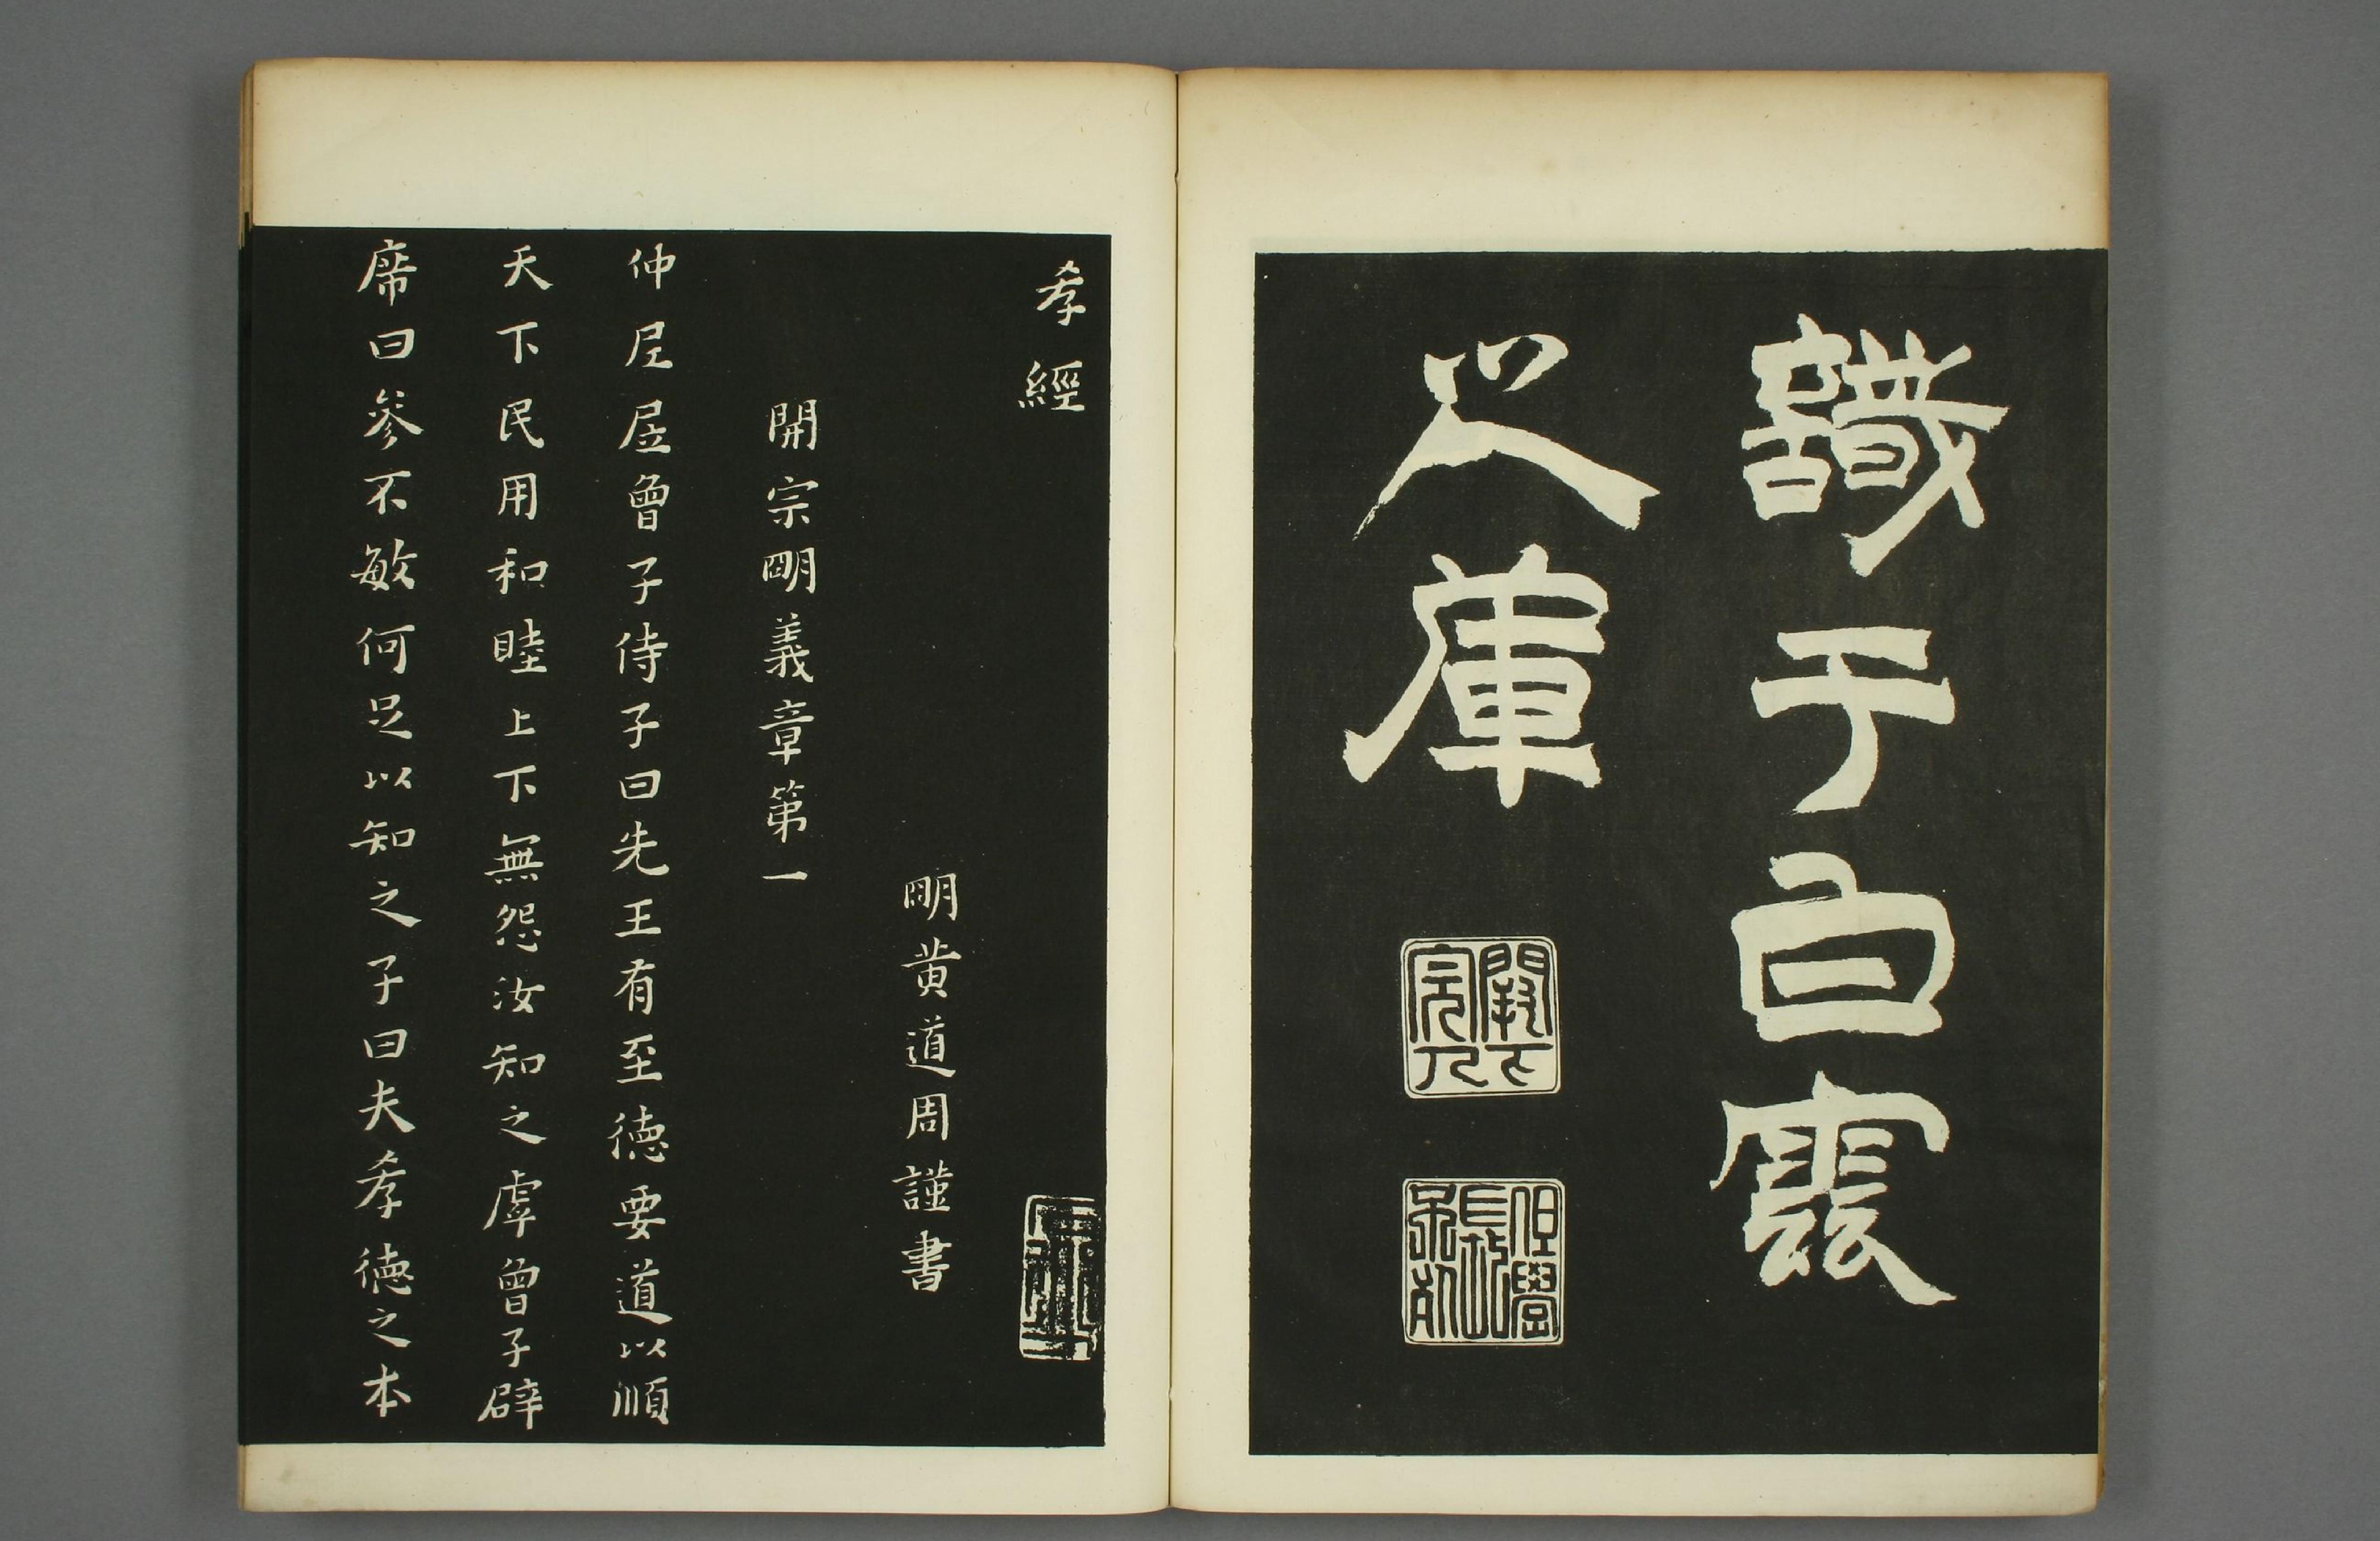 識于白
之庫
孝經
明黄道周謹書
開宗明義章第一
仲尼居曾子侍子曰先王有至徳要道以順
天下民用和睦上下無怨汝知之虖曾子辟
席曰參不敏何足以知之子曰夫孝徳之本